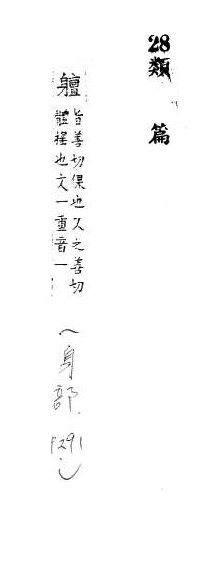 28
類篇
軆 旨善切倮也又之善切
體裎也文一重音一
(身部. P291)